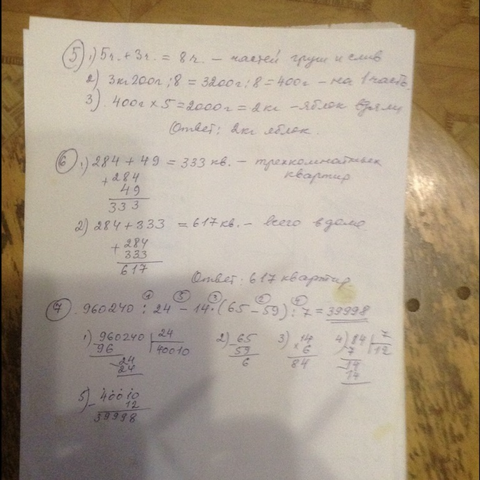 5 1) 5ч. + 3ч. = 8ч. – частей груш и слив
2) 3кг200г : 8 = 3200г : 8 = 400г – на 1 часть
3) 400г х 5 = 2000г = 2кг – яблок взяли
Ответ: 2кг яблок.
6 1) 284 + 49 = 333 кв. – трехкомнатных
квартир
+ 284
49
333
2) 284 + 333 = 617 кв. – всего в доме
+ 284
333
617
Ответ: 617 квартир
7. 960240 : 24 – 14 · (65 – 59) : 7 = 39998
1) 960240 24 2) 65 3) 14 4) 84 7
96 40010 59 х 6 7 12
24 6 84 14
24 14
5) 40010
12
39998